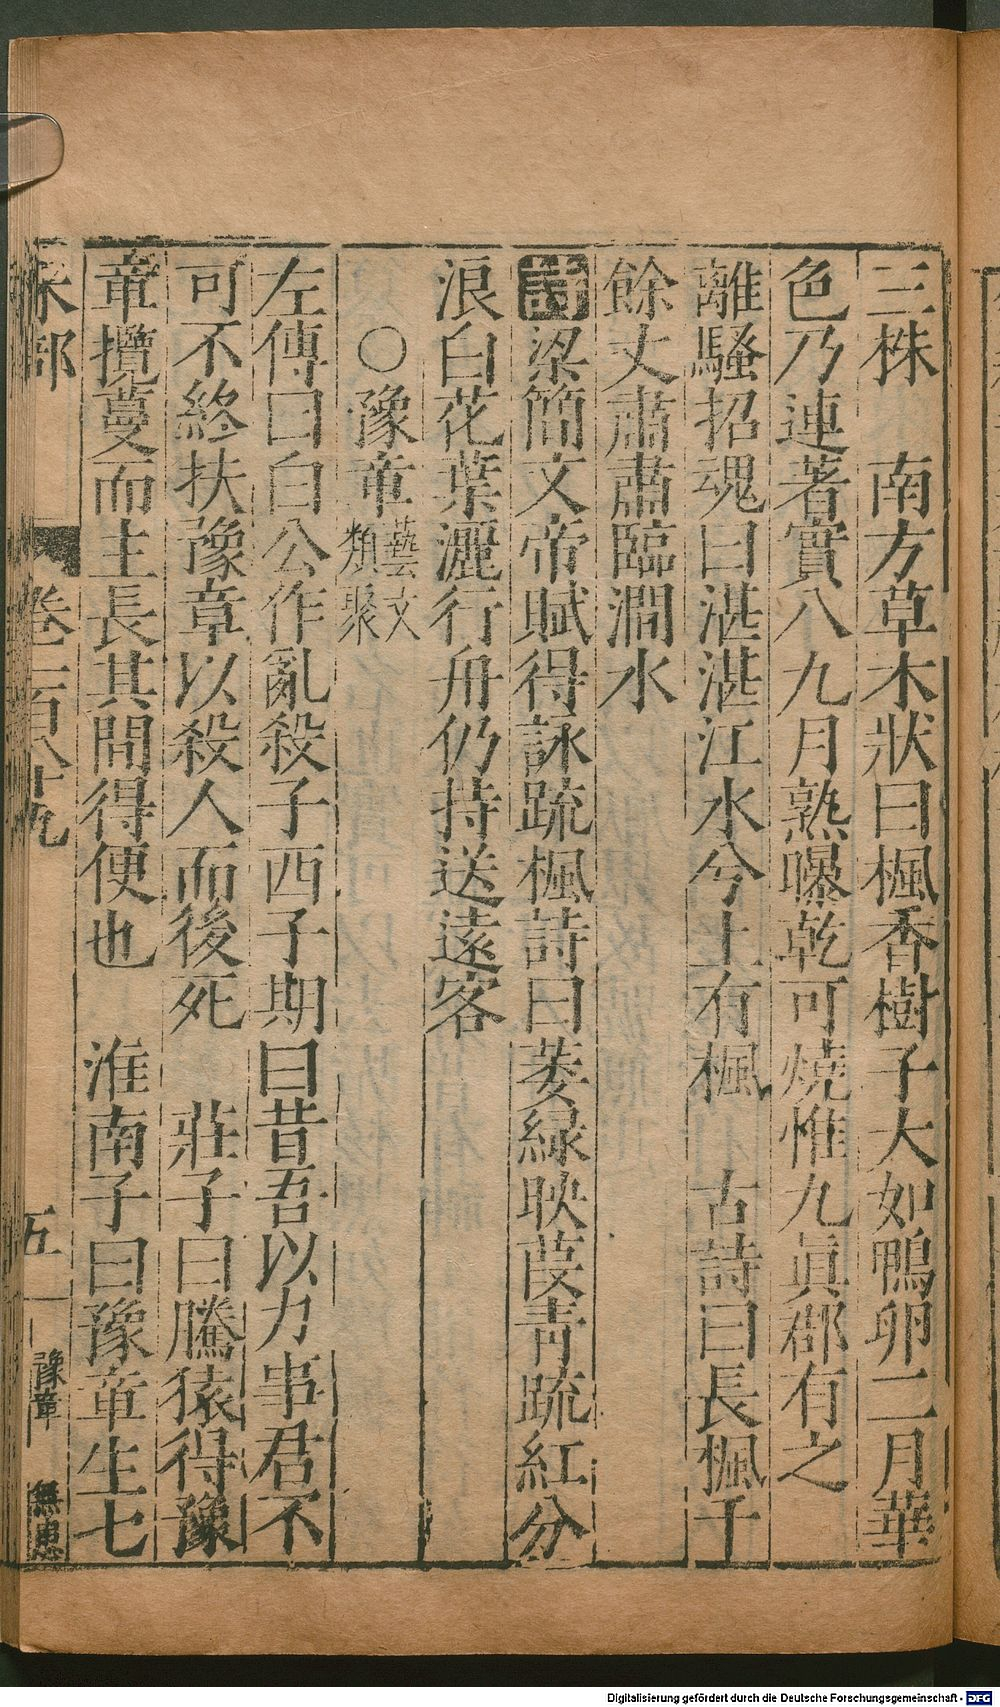 三株　南方草木狀曰楓香樹子大如鴨卵二月華
色乃連著實八九月熟曝乾可燒惟九眞郡有之
離騷招魂曰湛湛江水兮上有楓　古詩曰長楓千
餘丈肅肅臨澗水
詩梁簡文帝賦得詠疏楓詩曰萎綠映葭青疏紅分
浪白花葉灑行舟仍持送遠客
○豫章藝文類聚
左傳曰白公作亂殺子西子期　曰昔吾以力事君不
可不終抶豫章以殺人而後死　莊子曰騰猿得豫
章攬蔓而主長其間得便也　淮南子曰豫章生七
木部　卷二百八十九　五　豫章　無患
Digitalisierung gefördert durch die Deutsche Forschungsgemeinschaft - DFG